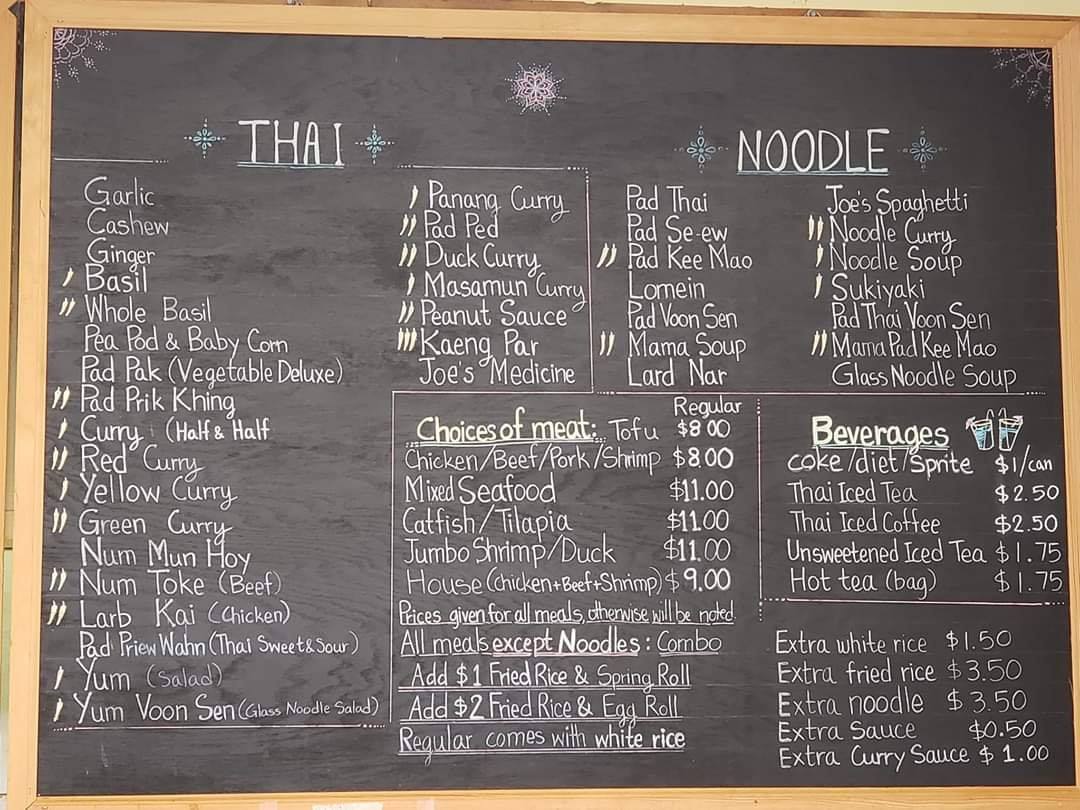 THAI
Garlic
Cashew
Ginger
Basil
Whole Basil
Pea Pod & Baby Corn
Pad Pak (Vegetable Deluxe)
Pad Prik Khing
Curry (Half & Half
Red Curry
Yellow Curry
Green Curry
Num Mun Hoy
Num Toke (Beef)
Larb Kai (Chicken)
Pad Priew Wahn (Thai Sweet & Sour)
Yum (Salad)
Yum Voon Sen (Glass Noodle Salad)
Panang Curry
Pad Ped
Duck Curry
Masamun Curry
Peanut Sauce
Kaeng Par
Joe's Medicine
NOODLE
Pad Thai
Pad Se-ew
Pad Kee Mao
Lomein
Pad Voon Sen
Mama Soup
Lard Nar
Joe's Spaghetti
Noodle Curry
Noodle Soup
Sukiyaki
Pad Thai Voon Sen
Mama Pad Kee Mao
Glass Noodle Soup
Regular
Choices of meat: Tofu $8.00
Chicken/Beef/Pork/Shrimp $8.00
Mixed Seafood $11.00
Catfish/Tilapia $11.00
Jumbo Shrimp/Duck $11.00
House (Chicken+Beef+Shrimp) $9.00
Prices given for all meals, otherwise will be noted.
All meals except Noodles: Combo
Add $1 Fried Rice & Spring Roll
Add $2 Fried Rice & Egg Roll
Regular comes with white rice
Beverages
coke/diet/Sprite $1/can
Thai Iced Tea $2.50
Thai Iced Coffee $2.50
Unsweetened Iced Tea $1.75
Hot tea (bag) $1.75
Extra white rice $1.50
Extra fried rice $3.50
Extra noodle $3.50
Extra Sauce $0.50
Extra Curry Sauce $1.00